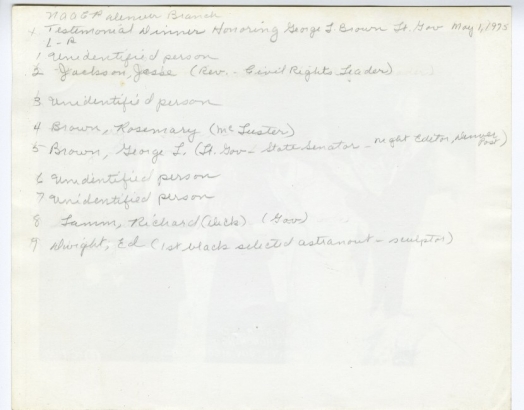 NAACP Denver Branch
Testimonial Dinner Honoring George L Brown Lt. Gov May 1, 1975
L-R
1 Unidentified person
2 Jackson, Jesse (Rev. - Civil Rights Leader)
3 Unidentified person
4 Brown, Rosemary (Mc Luster)
5 Brown, George L. (Lt. Gov - State Senator - night Editor, Denver Post)
6 Unidentified person
7 Unidentified person
8 Lamm, Richard (Dick) (Gov)
9 Dwight, Ed (1st black selected astranout - sculptor)